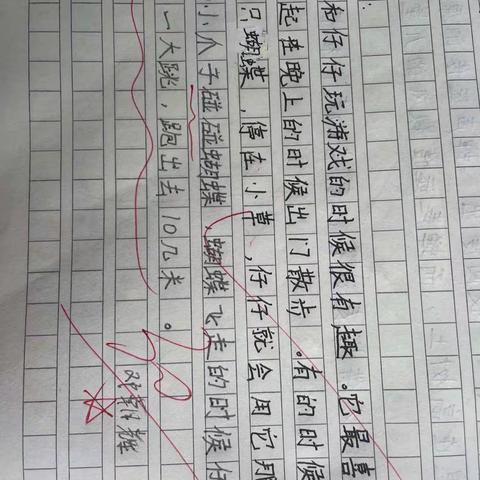 和仔仔玩游戏的时候很有趣。它最喜
起在晚上的时候出门散步。有的时候
只蝴蝶，停在小草，仔仔就会用它那
小爪子碰碰蝴蝶，蝴蝶飞走的时候仔
一大跳，跑出去10几米。